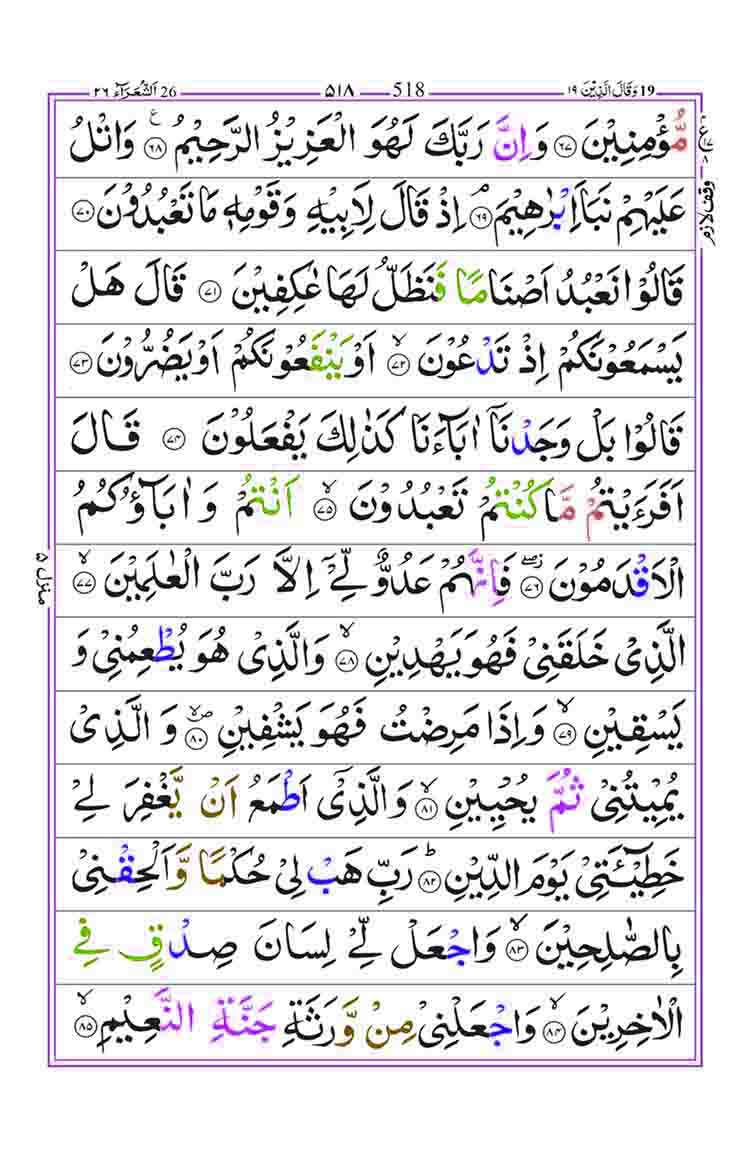 19 وَقَالَ الَّذِيْنَ ١٩ — 518 — ٥١٨ — 26 اَلشُّعَرَآء ٢٦
مُّؤْمِنِيْنَ ٦٧ وَ اِنَّ رَبَّكَ لَهُوَ الْعَزِيْزُ الرَّحِيْمُ ٦٨ ع وَ اتْلُ
عَلَيْهِمْ نَبَاَ اِبْرٰهِيْمَ ۘ ٦٩ اِذْ قَالَ لِاَبِيْهِ وَ قَوْمِهٖ مَا تَعْبُدُوْنَ ٧٠
قَالُوْا نَعْبُدُ اَصْنَامًا فَنَظَلُّ لَهَا عٰكِفِيْنَ ٧١ قَالَ هَلْ
يَسْمَعُوْنَكُمْ اِذْ تَدْعُوْنَ ۙ ٧٢ اَوْ يَنْفَعُوْنَكُمْ اَوْ يَضُرُّوْنَ ٧٣
قَالُوْا بَلْ وَجَدْنَاۤ اٰبَآءَنَا كَذٰلِكَ يَفْعَلُوْنَ ٧٤ قَالَ
اَفَرَءَيْتُمْ مَّا كُنْتُمْ تَعْبُدُوْنَ ۙ ٧٥ اَنْتُمْ وَ اٰبَآؤُكُمُ
الْاَقْدَمُوْنَ ۖ ز ٧٦ فَاِنَّهُمْ عَدُوٌّ لِّيْۤ اِلَّا رَبَّ الْعٰلَمِيْنَ ۙ ٧٧
الَّذِيْ خَلَقَنِيْ فَهُوَ يَهْدِيْنِ ۙ ٧٨ وَ الَّذِيْ هُوَ يُطْعِمُنِيْ وَ
يَسْقِيْنِ ۙ ٧٩ وَ اِذَا مَرِضْتُ فَهُوَ يَشْفِيْنِ ۪ۙ ٨٠ وَ الَّذِيْ
يُمِيْتُنِيْ ثُمَّ يُحْيِيْنِ ۙ ٨١ وَ الَّذِيْۤ اَطْمَعُ اَنْ يَّغْفِرَ لِيْ
خَطِيْٓـَٔتِيْ يَوْمَ الدِّيْنِ ؕ ٨٢ رَبِّ هَبْ لِيْ حُكْمًا وَّ اَلْحِقْنِيْ
بِالصّٰلِحِيْنَ ۙ ٨٣ وَ اجْعَلْ لِّيْ لِسَانَ صِدْقٍ فِي
الْاٰخِرِيْنَ ۙ ٨٤ وَ اجْعَلْنِيْ مِنْ وَّرَثَةِ جَنَّةِ النَّعِيْمِ ۙ ٨٥
وقف لازم
منزل ٥